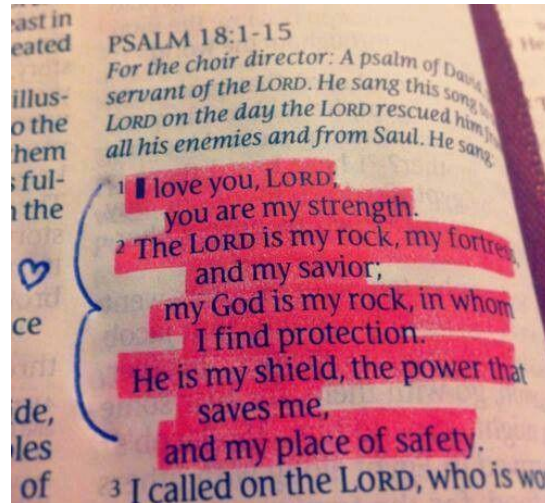 east in
eated
illus-
o the
hem
s ful-
n the
ce
de,
les
of
PSALM 18:1-15
For the choir director: A psalm of David
servant of the LORD. He sang this song
LORD on the day the LORD rescued him from
all his enemies and from Saul. He sang:
1 I love you, LORD;
you are my strength.
2 The LORD is my rock, my fortress,
and my savior;
my God is my rock, in whom
I find protection.
He is my shield, the power that
saves me,
and my place of safety.
3 I called on the LORD, who is wo